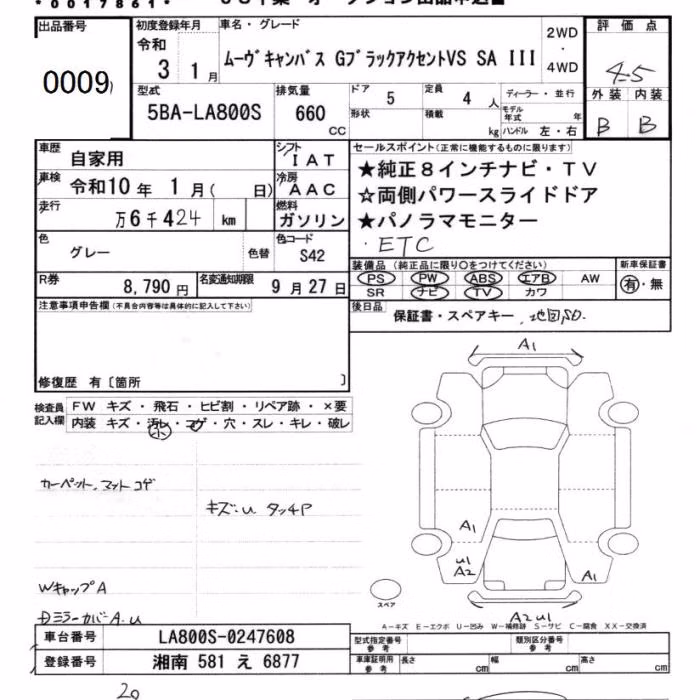 *0017861*
出品番号 初度登録年月 車名・グレード 2WD・4WD 評価点
0009 令和 3 1月 ムーヴキャンバス GブラックアクセントVS SA III 4.5
型式 排気量 ドア 定員 ディーラー・並行 外装 内装
5BA-LA800S 660 CC 5 4 人 モデル年式 年 B B
形状 積載 kg ハンドル 左・右
車歴 自家用 シフト IAT セールスポイント(正常に機能するものに限ります)
車検 令和10年 1月( 日) 冷房 AAC ★純正8インチナビ・TV
☆両側パワースライドドア
走行 万6千424 km 燃料 ガソリン ★パノラマモニター
色 グレー 色替 色コード S42 ・ETC
R券 8,790円 名変通知期限 9月27日 装備品(純正品に限り○をつけてください) 新車保証書
PS PW ABS エアB AW 有・無
SR ナビ TV カワ
注意事項申告欄(不具合内容等は具体的に記入して下さい) 後日品 保証書・スペアキー、地図SD.
修復歴 有〔箇所 〕
検査員記入欄 FW キズ・飛石・ヒビ割・リペア跡・×要
内装 キズ・汚レ・コゲ・穴・スレ・キレ・破レ
小
A1
カーペット、マットコゲ
キズ・U タッチP
A1
U1
A2
A1
WキャップA
スペア
DミラーカバーA.U
A2 U1
A-キズ E-エクボ U-凹み W-補修跡 S-サビ C-腐食 XX-交換済
車台番号 LA800S-0247608 型式指定番号 参考 類別区分番号 参考
登録番号 湘南 581 え 6877 車庫証明用 参考 長さ cm 幅 cm 高さ cm
20